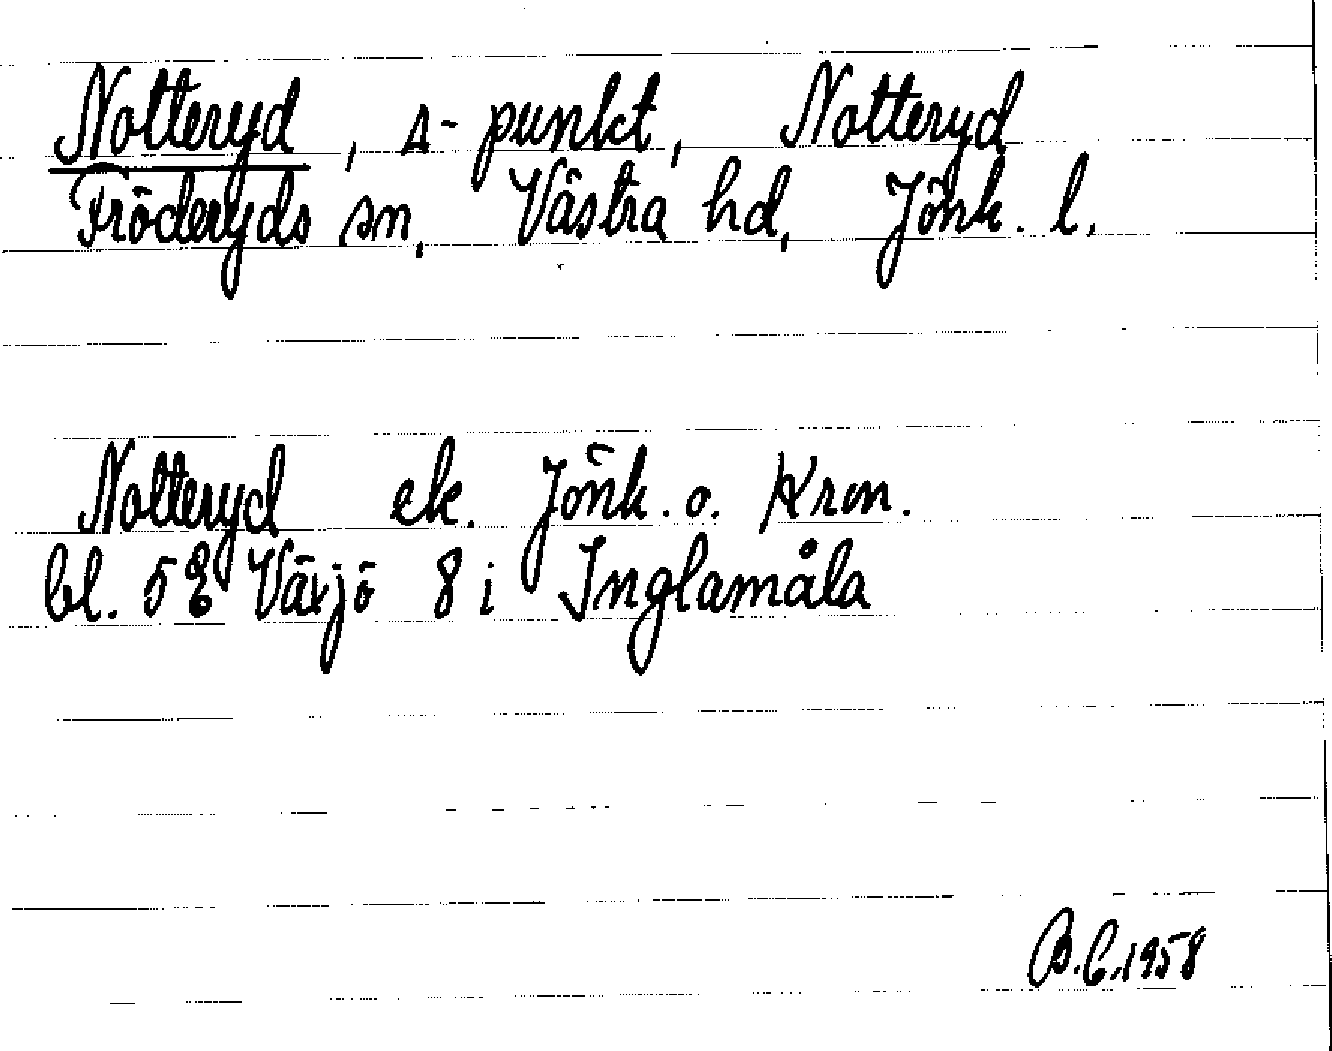 Notteryd, s-punkt, Notteryd
Fröderyds sn, Västra hd, Jönk. l.
Notteryd ek. Jönk. o. Kron.
bl. 5 E Växjö 8 i Inglamåla
B.C.1958